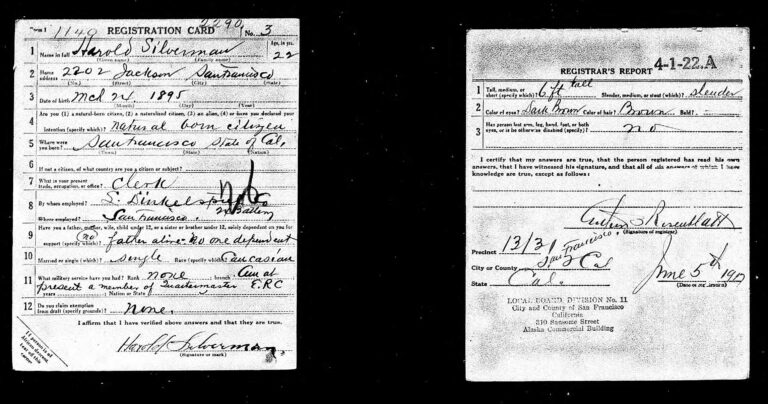 Form 1 1149 REGISTRATION CARD 2290 No. 3
1 Name in full Harold Silverman Age, in yrs. 22
(Given name) (Family name)
2 Home address 2202 Jackson San Francisco
(No.) (Street) (City) (State)
3 Date of birth Mch 24, 1895
(Month) (Day) (Year)
4 Are you (1) a natural-born citizen, (2) a naturalized citizen, (3) an alien, (4) or have you declared your
intention (specify which)? Natural born citizen
5 Where were you born? San Francisco State of Cal,
(Town) (State) (Nation)
6 If not a citizen, of what country are you a citizen or subject?
7 What is your present trade, occupation, or office? Clerk
8 By whom employed? L. Dinkelspiel Co
Where employed? San Francisco. Battery
9 Have you a father, mother, wife, child under 12, or a sister or brother under 12, solely dependent on you for
support (specify which)? no father alive no one dependent
10 Married or single (which)? Single Race (specify which)? Caucasian
11 What military service have you had? Rank none branch Am at
present a member of Quartermaster E.R.C
years Nation or State
12 Do you claim exemption from draft (specify grounds)? None.
I affirm that I have verified above answers and that they are true.
Harold Silverman.
(Signature or mark)
If person is of African descent, tear off this corner
REGISTRAR'S REPORT 4-1-22.A
1 Tall, medium, or short (specify which)? 6 ft tall Slender, medium, or stout (which)? slender
2 Color of eyes? Dark Brown Color of hair? Brown Bald?
3 Has person lost arm, leg, hand, foot, or both
eyes, or is he otherwise disabled (specify)? no
I certify that my answers are true, that the person registered has read his own
answers, that I have witnessed his signature, and that all of his answers of which I have
knowledge are true, except as follows:
Rosenblatt
(Signature of registrar)
Precinct 13/31
City or County San Francisco,
State Cal.
June 5th 1917
(Date of registration)
LOCAL BOARD, DIVISION No. 11
City and County of San Francisco
California
310 Sansome Street
Alaska Commercial Building